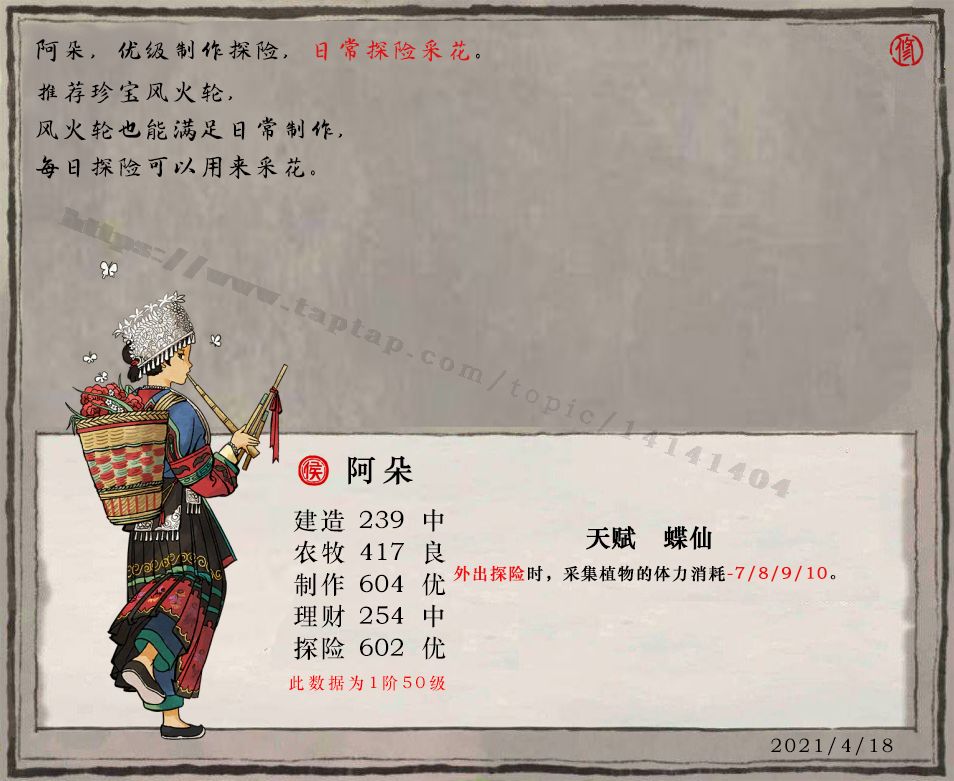 阿朵，优级制作探险，日常探险采花。
修
推荐珍宝风火轮，
风火轮也能满足日常制作，
每日探险可以用来采花。
https://www.taptap.com/topic/14141404
侯 阿朵
建造 239 中
农牧 417 良
制作 604 优
理财 254 中
探险 602 优
此数据为1阶50级
天赋 蝶仙
外出探险时，采集植物的体力消耗-7/8/9/10。
2021/4/18